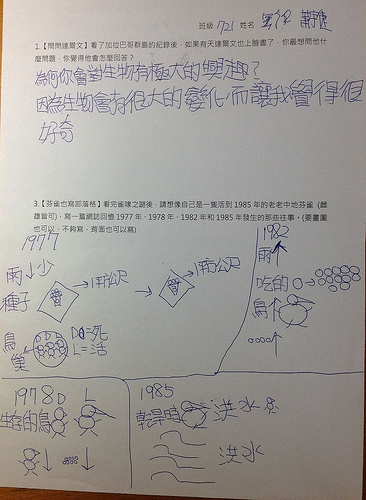 班級 721 姓名
1.【問問達爾文】看了加拉巴哥群島的紀錄後，如果有天達爾文也上臉書了，你最想問他什
麼問題，你覺得他會怎麼回答？
為何你會對生物有極大的興趣？
因為生物會有很大的變化，而讓我覺得很
好奇
3.【芬雀也寫部落格】看完雀喙之謎後，請想像自己是一隻活到 1985 年的老老中地芬雀 (雌
雄皆可)，寫一篇網誌回憶 1977 年、1978 年，1982 年和 1985 年發生的那些往事。(要畫圖
也可以，不夠寫，背面也可以寫)
1977
雨↓少
種子 → 1平方公尺 → → 1平方公尺
鳥巢 D=死
L=活
1982
雨↑
吃的
鳥↑
1978 D L
生存的鳥
1985
乾旱時 洪水
洪水